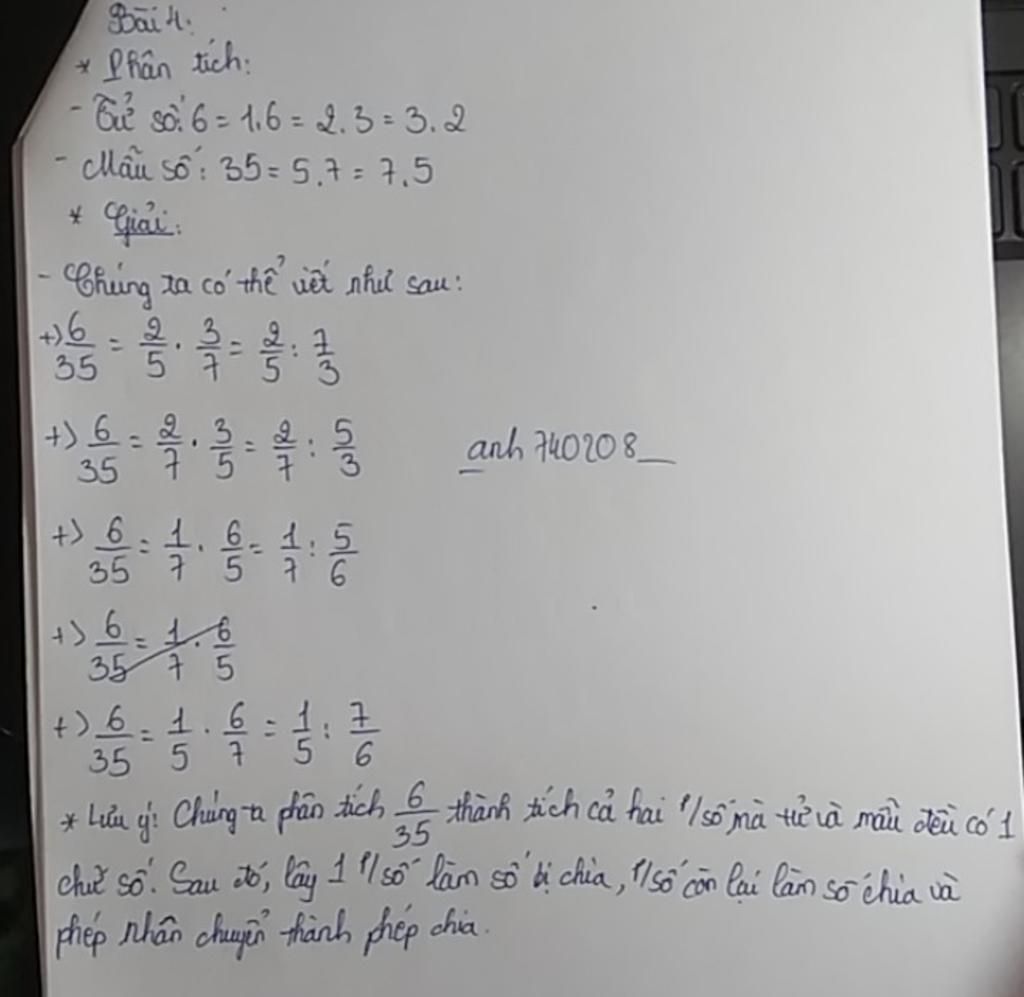 Bài 4:
* Phân tích:
- Tử số: 6 = 1.6 = 2.3 = 3.2
- Mẫu số: 35 = 5.7 = 7.5
* Giải:
- Chúng ta có thể viết như sau:
+) 6/35 = 2/5 . 3/7 = 2/5 : 7/3
+) 6/35 = 2/7 . 3/5 = 2/7 : 5/3
anh740208__
+) 6/35 = 1/7 . 6/5 = 1/7 : 5/6
+) 6/35 = 1/7 . 6/5
+) 6/35 = 1/5 . 6/7 = 1/5 : 7/6
* Lưu ý: Chúng ta phân tích 6/35 thành tích cả hai p/số mà tử và mẫu đều có 1
chữ số. Sau đó, lấy 1 p/số làm số bị chia, p/số còn lại làm số chia và
phép nhân chuyển thành phép chia.